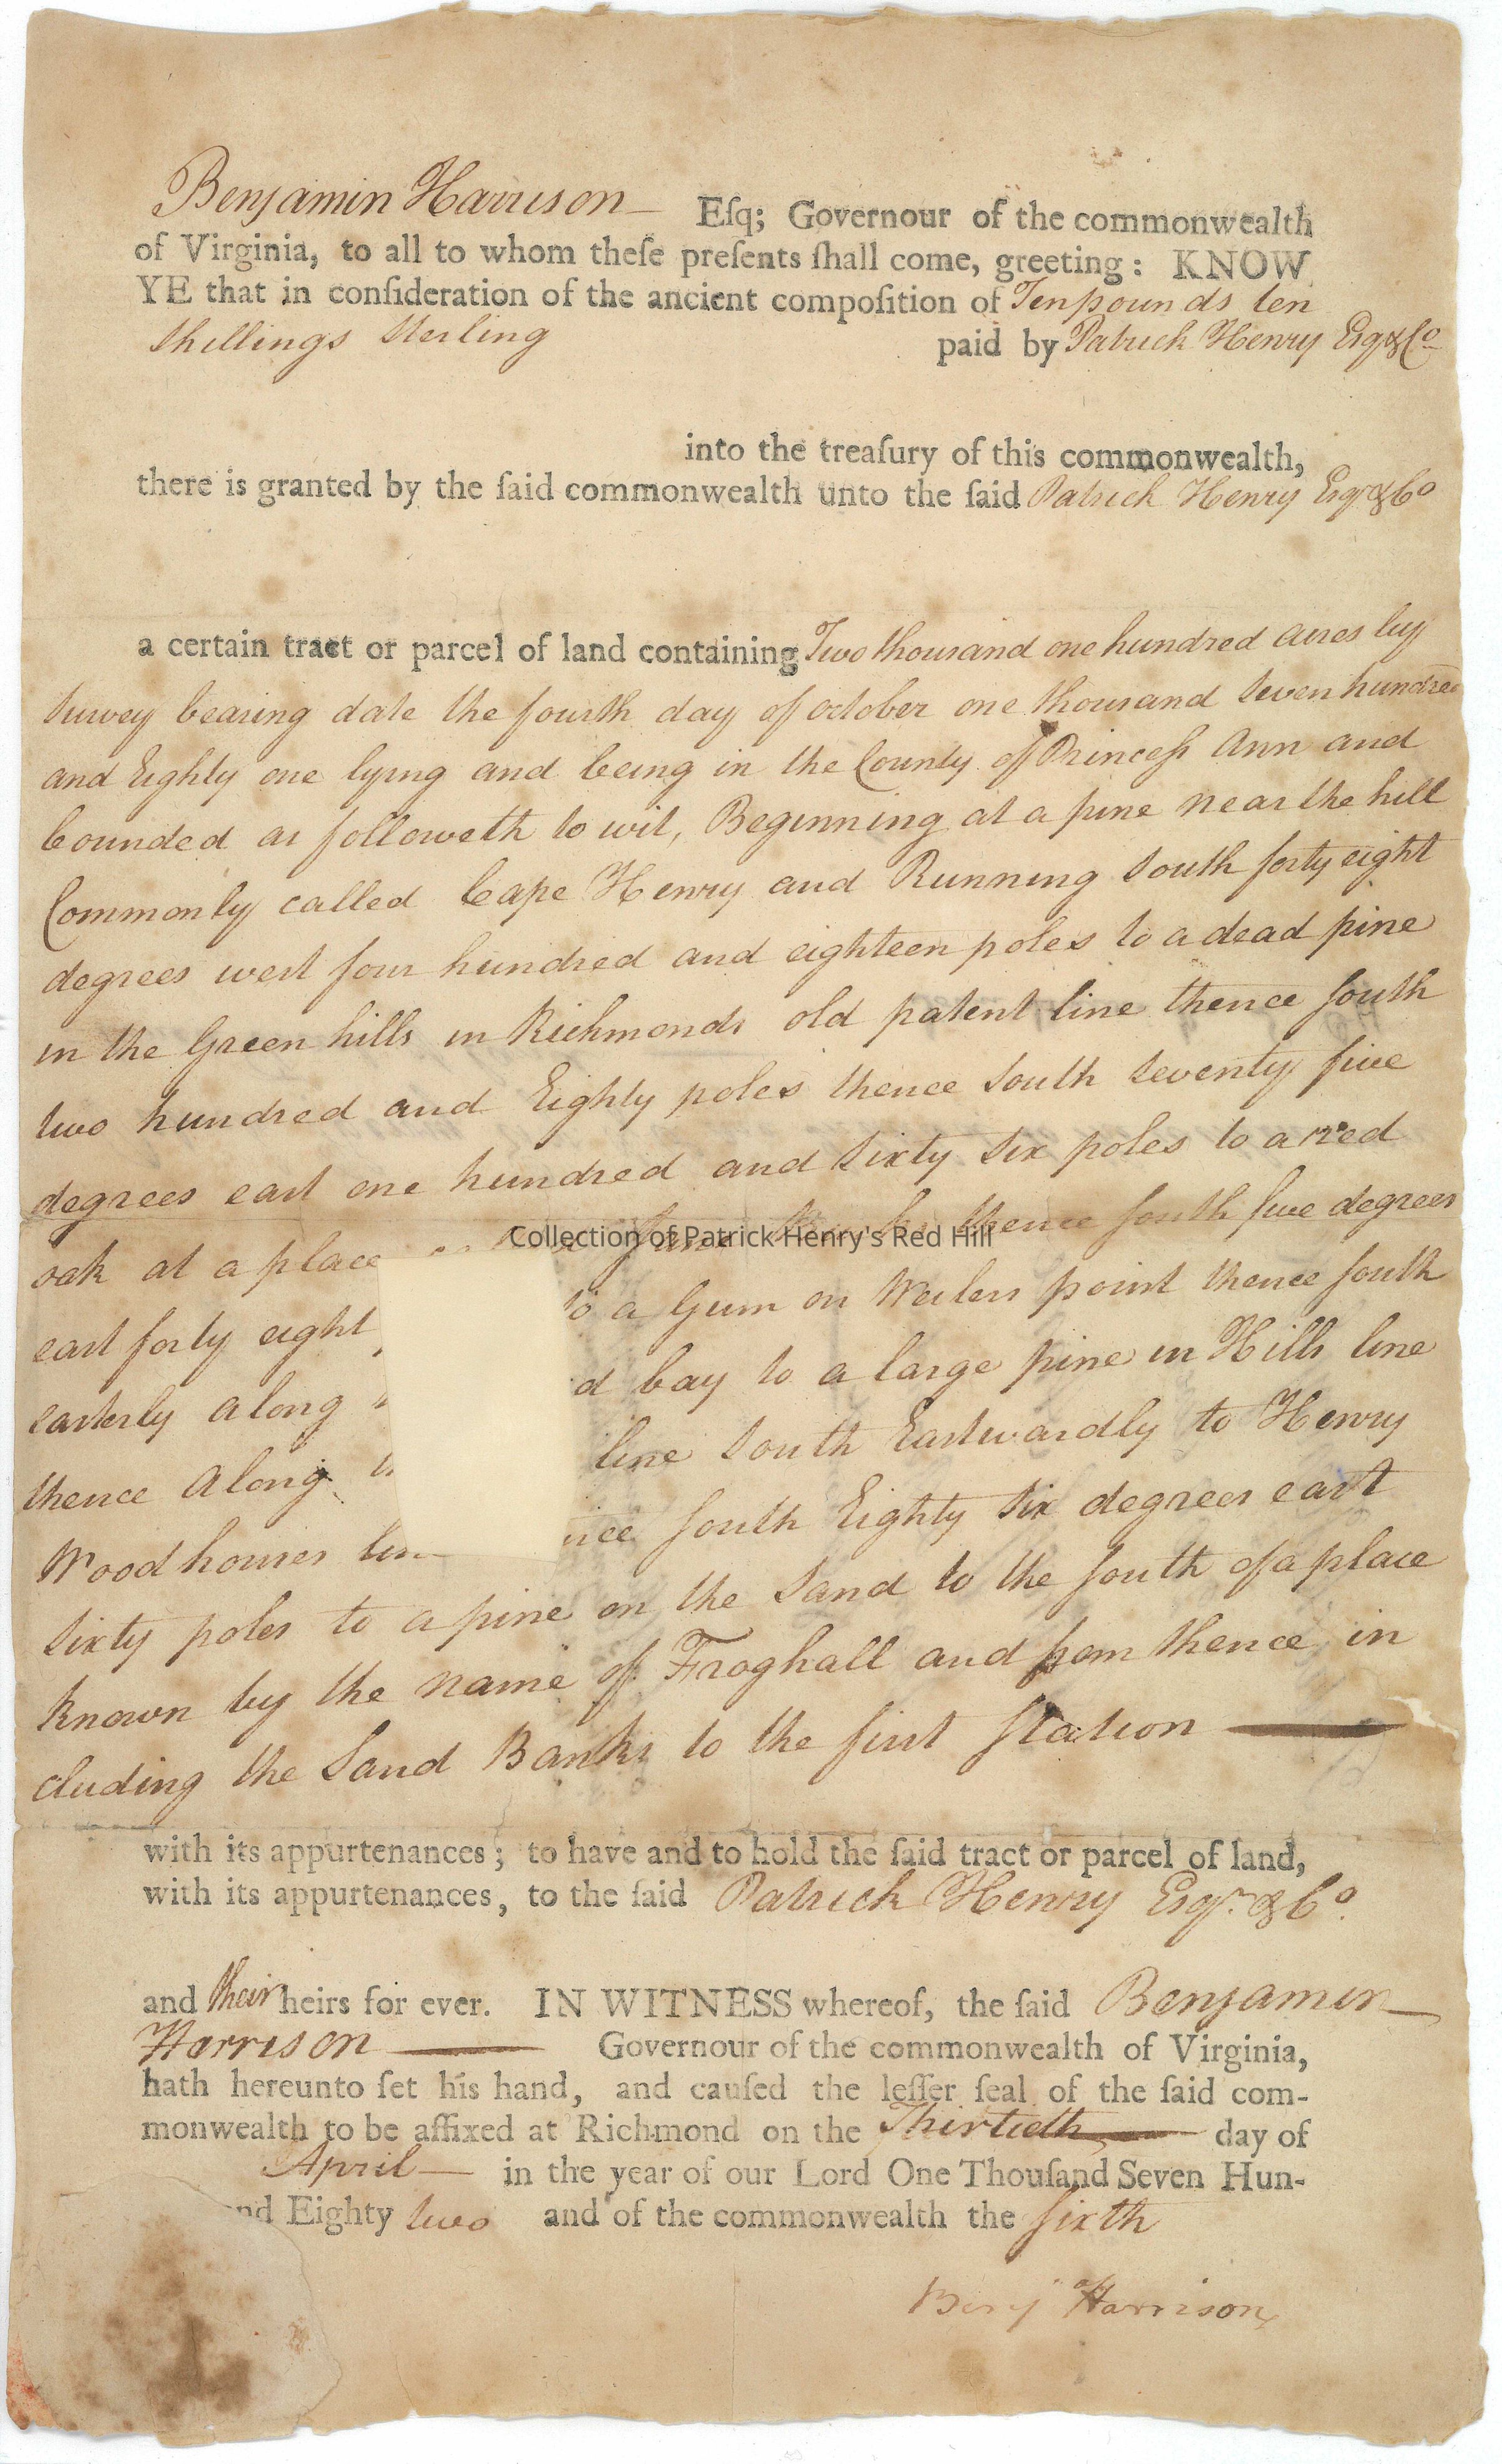 Benjamin Harrison — Eſq; Governour of the commonwealth
of Virginia, to all to whom theſe preſents ſhall come, greeting: KNOW
YE that in conſideration of the ancient compoſition of Ten pounds ten
Shillings Sterling paid by Patrick Henry Esq & Co
into the treaſury of this commonwealth,
there is granted by the ſaid commonwealth unto the ſaid Patrick Henry Esqr & Co
a certain tract or parcel of land containing Two thousand one hundred acres by
Survey bearing date the fourth day of october one thousand Seven hundred
and Eighty one lying and being in the County of Princeſs Ann and
bounded as followeth to wit, Beginning at a pine near the hill
Commonly called Cape Henry and Running South forty eight
degrees west four hundred and eighteen poles to a dead pine
in the Green hills in Richmonds old patent line thence South
two hundred and Eighty poles thence South Seventy five
degrees east one hundred and Sixty Six poles to a red
oak at a place thence South five degrees
Collection of Patrick Henry's Red Hill
east forty eight to a Gum on point thence South
easterly along bay to a large pine in Hills line
thence Along line South Eastwardly to Henry
Woodhouses South Eighty Six degrees east
Sixty poles to a pine on the Sand to the South of a place
known by the name of Froghall and from thence in
cluding the Sand Banks to the first Station —
with its appurtenances; to have and to hold the ſaid tract or parcel of land,
with its appurtenances, to the ſaid Patrick Henry Esqr. & Co.
and their heirs for ever. IN WITNESS whereof, the ſaid Benjamin —
Harrison — Governour of the commonwealth of Virginia,
hath hereunto ſet his hand, and cauſed the leſſer ſeal of the ſaid com-
monwealth to be affixed at Richmond on the Thirtieth — day of
April — in the year of our Lord One Thouſand Seven Hun-
nd Eighty two and of the commonwealth the Sixth
Benj Harrison